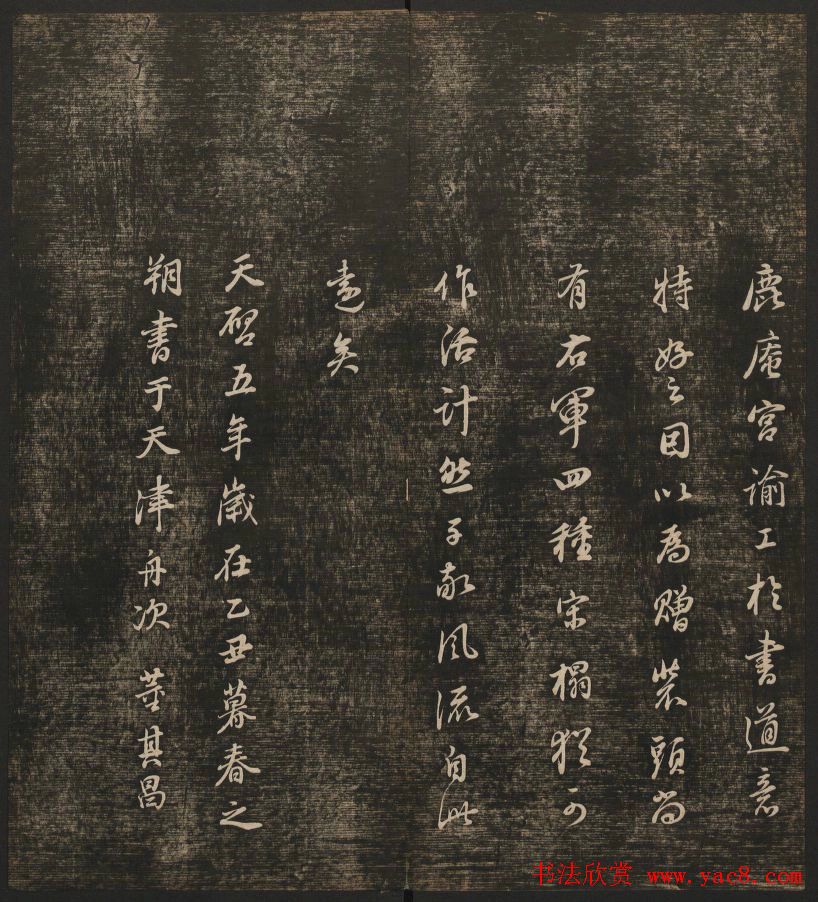 鹿庵宫谕工於書道意
特好之因以為赠装頭尚
有右軍四種宋榻猶可
作活計然子敬風流自此
遠矣
天啓五年歲在乙丑暮春之
朔書于天津舟次 董其昌
书法欣赏 www.yac8.com